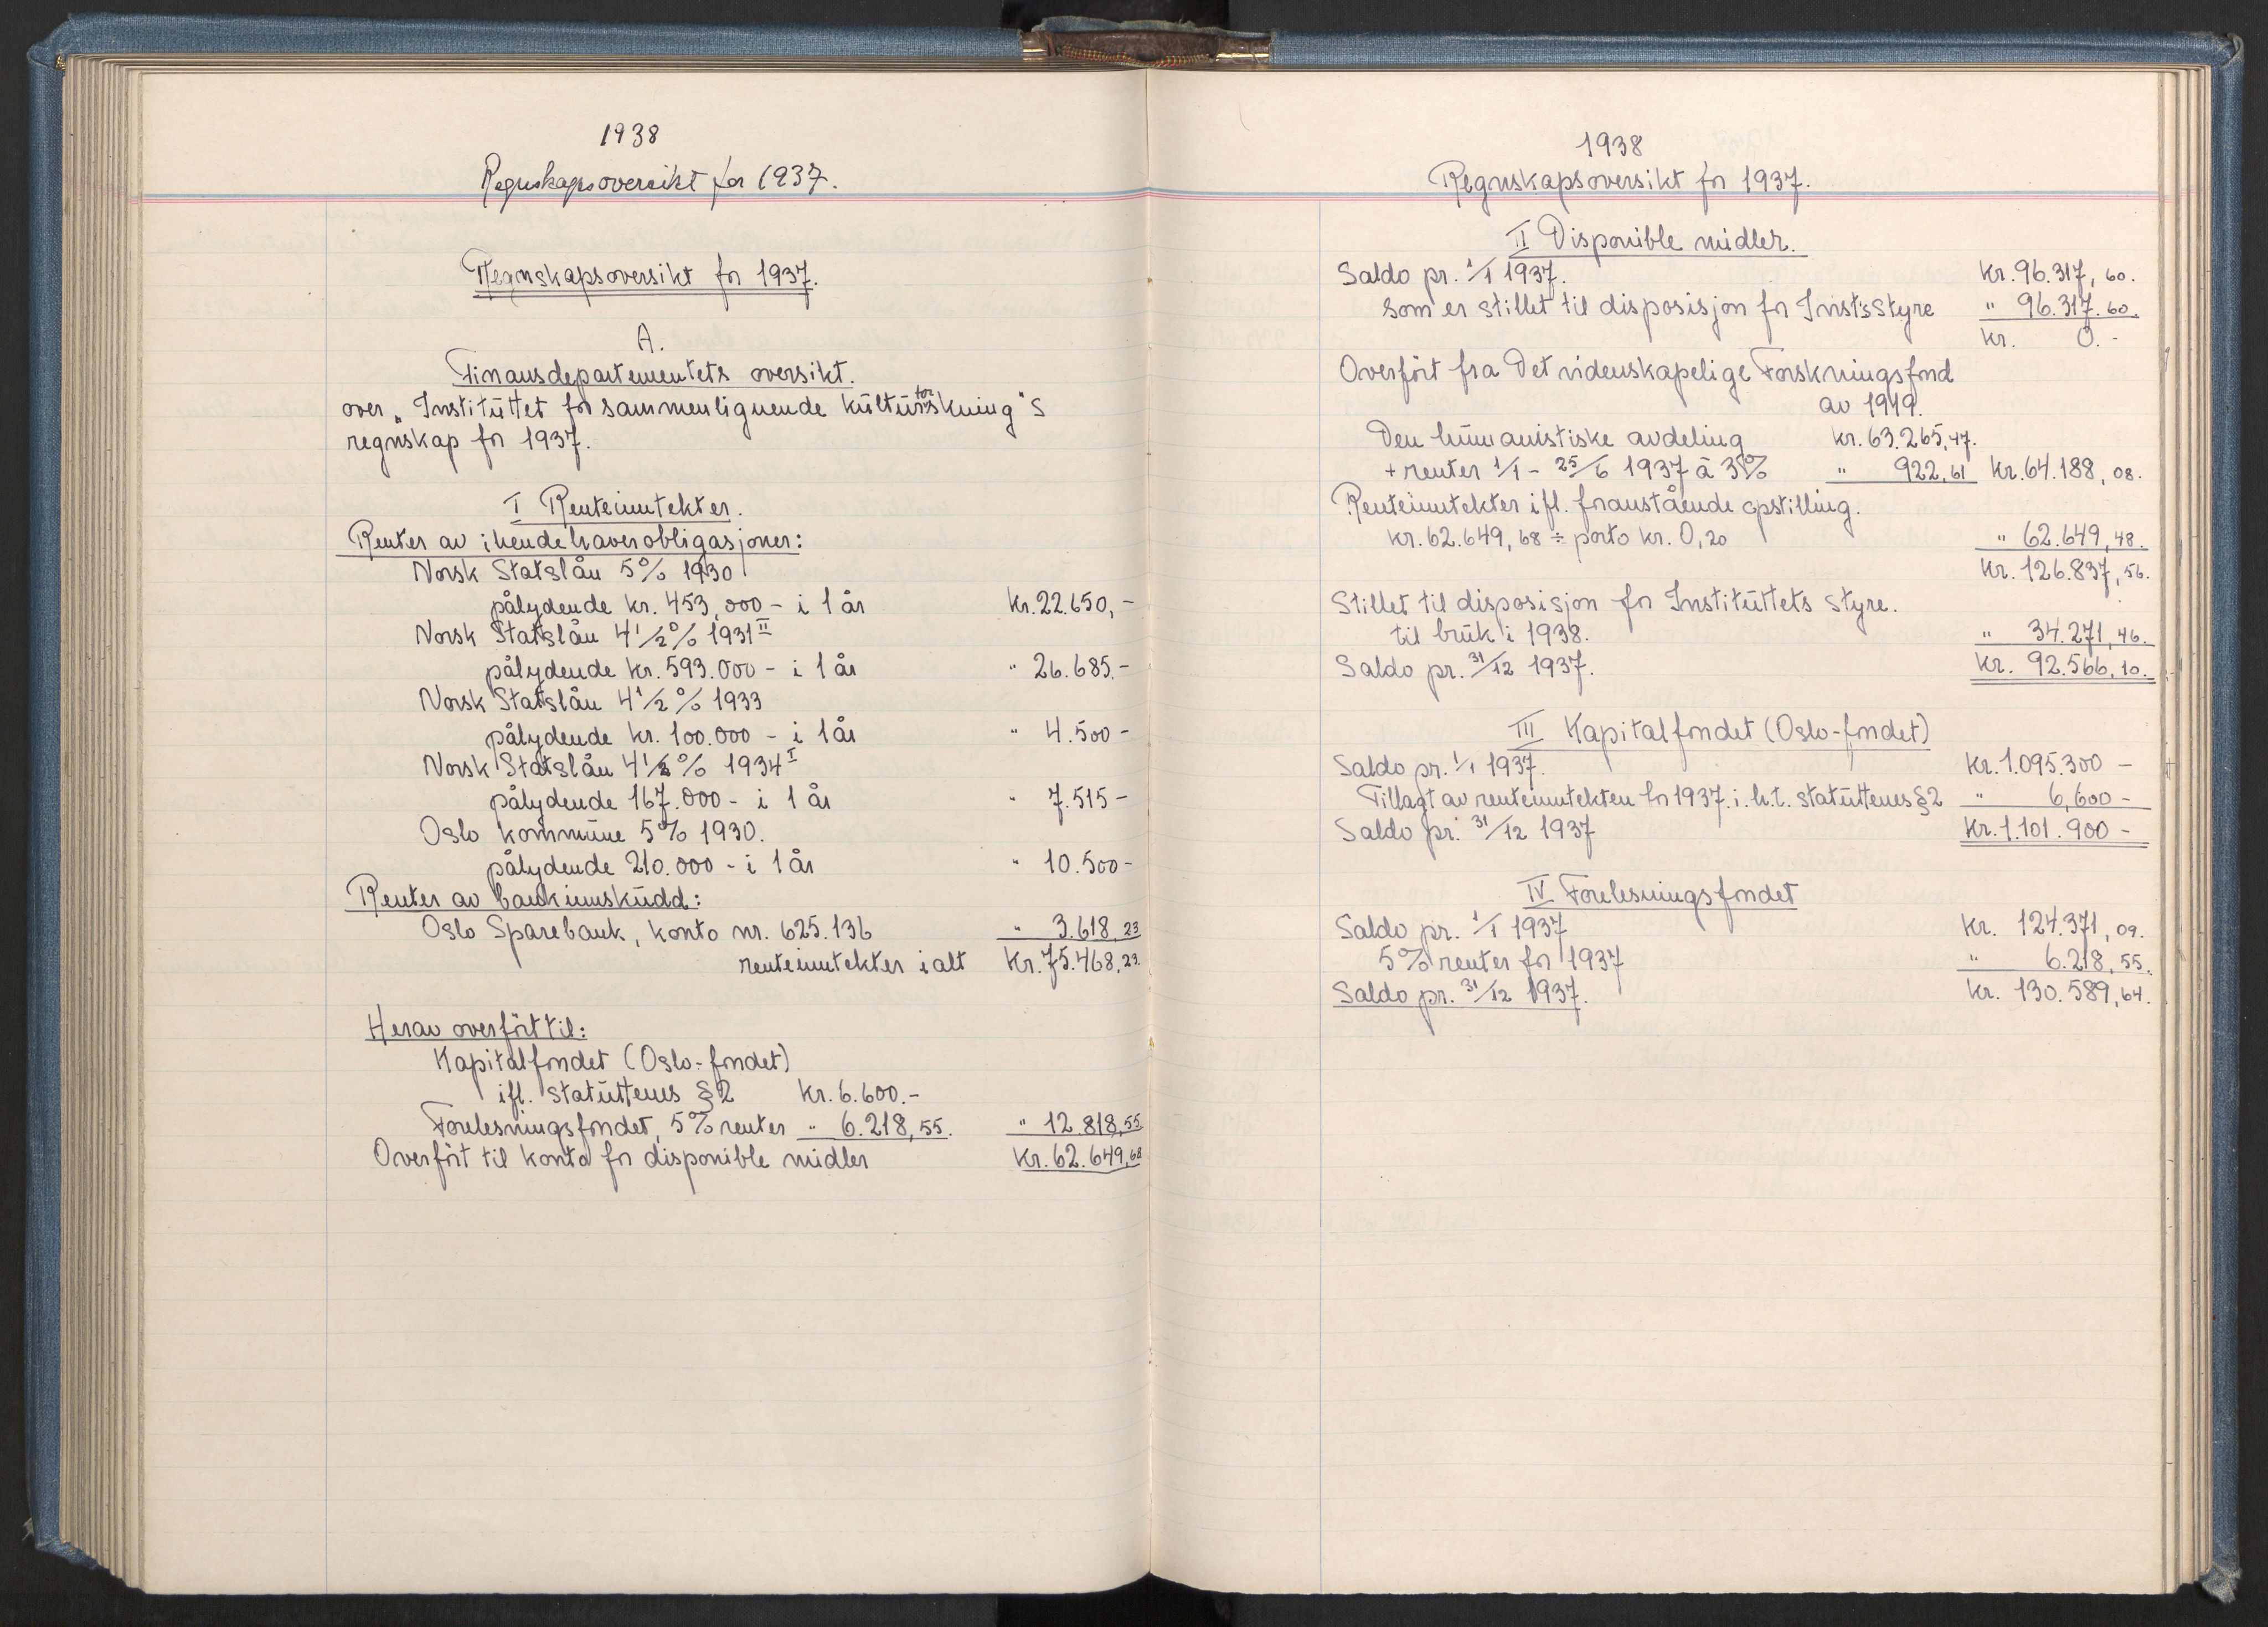 1938
Regnskapsoversikt for 1937.
Regnskapsoversikt for 1937.
A.
Finansdepartementets oversikt.
over „Instituttet for sammenlignende kulturforskning"s
regnskap for 1937.
I Renteinntekter.
Renter av ihendehaverobligasjoner:
Norsk Statslån 5% 1930
pålydende kr. 453.000 - i 1 år kr. 22.650,-
Norsk Statslån 4 1/2 % 1931 II
pålydende kr. 593.000 - i 1 år " 26.685.-
Norsk Statslån 4 1/2 % 1933
pålydende kr. 100.000 - i 1 år " 4.500 -
Norsk Statslån 4 1/2 % 1934 I
pålydende 167.000 - i 1 år " 7.515 -
Oslo kommune 5% 1930.
pålydende 210.000 - i 1 år " 10.500 -
Renter av bankinnskudd:
Oslo Sparebank, konto nr. 625.136 " 3.618,23
renteinntekter i alt kr. 75.468,23.
Herav overført til:
Kapitalfondet (Oslo-fondet)
ifl. statuttenes § 2 kr. 6.600.-
Forelesningsfondet, 5% renter " 6.218,55. " 12.818,55
Overført til konto for disponible midler kr. 62.649,68
1938
Regnskapsoversikt for 1937.
II Disponible midler.
Saldo pr. 1/1 1937. kr. 96.317,60.
som er stillet til disposisjon for Inst's Styre " 96.317.60.
kr. 0.-
Overført fra Det videnskapelige Forskningsfond
av 1919.
Den humanistiske avdeling kr. 63.265,47.
+ renter 1/1 - 25/6 1937 à 3% " 922,61 kr. 64.188,08.
Renteinntekter ifl. foranstående opstilling.
kr. 62.649,68 ÷ porto kr. 0,20 " 62.649,48.
kr. 126.837,56.
Stillet til disposisjon for Instituttets styre.
til bruk i 1938. " 34.271,46.
Saldo pr. 31/12 1937. kr. 92.566,10.
III Kapitalfondet (Oslo-fondet)
Saldo pr. 1/1 1937. kr. 1.095.300 -
Tillagt av renteinntekten for 1937. i. h. t. statuttenes § 2 " 6,600 -
Saldo pr. 31/12 1937 kr. 1.101.900 -
IV Forelesningsfondet
Saldo pr. 1/1 1937 kr. 124.371,09.
5% renter for 1937 " 6.218,55.
Saldo pr. 31/12 1937. kr. 130.589,64.